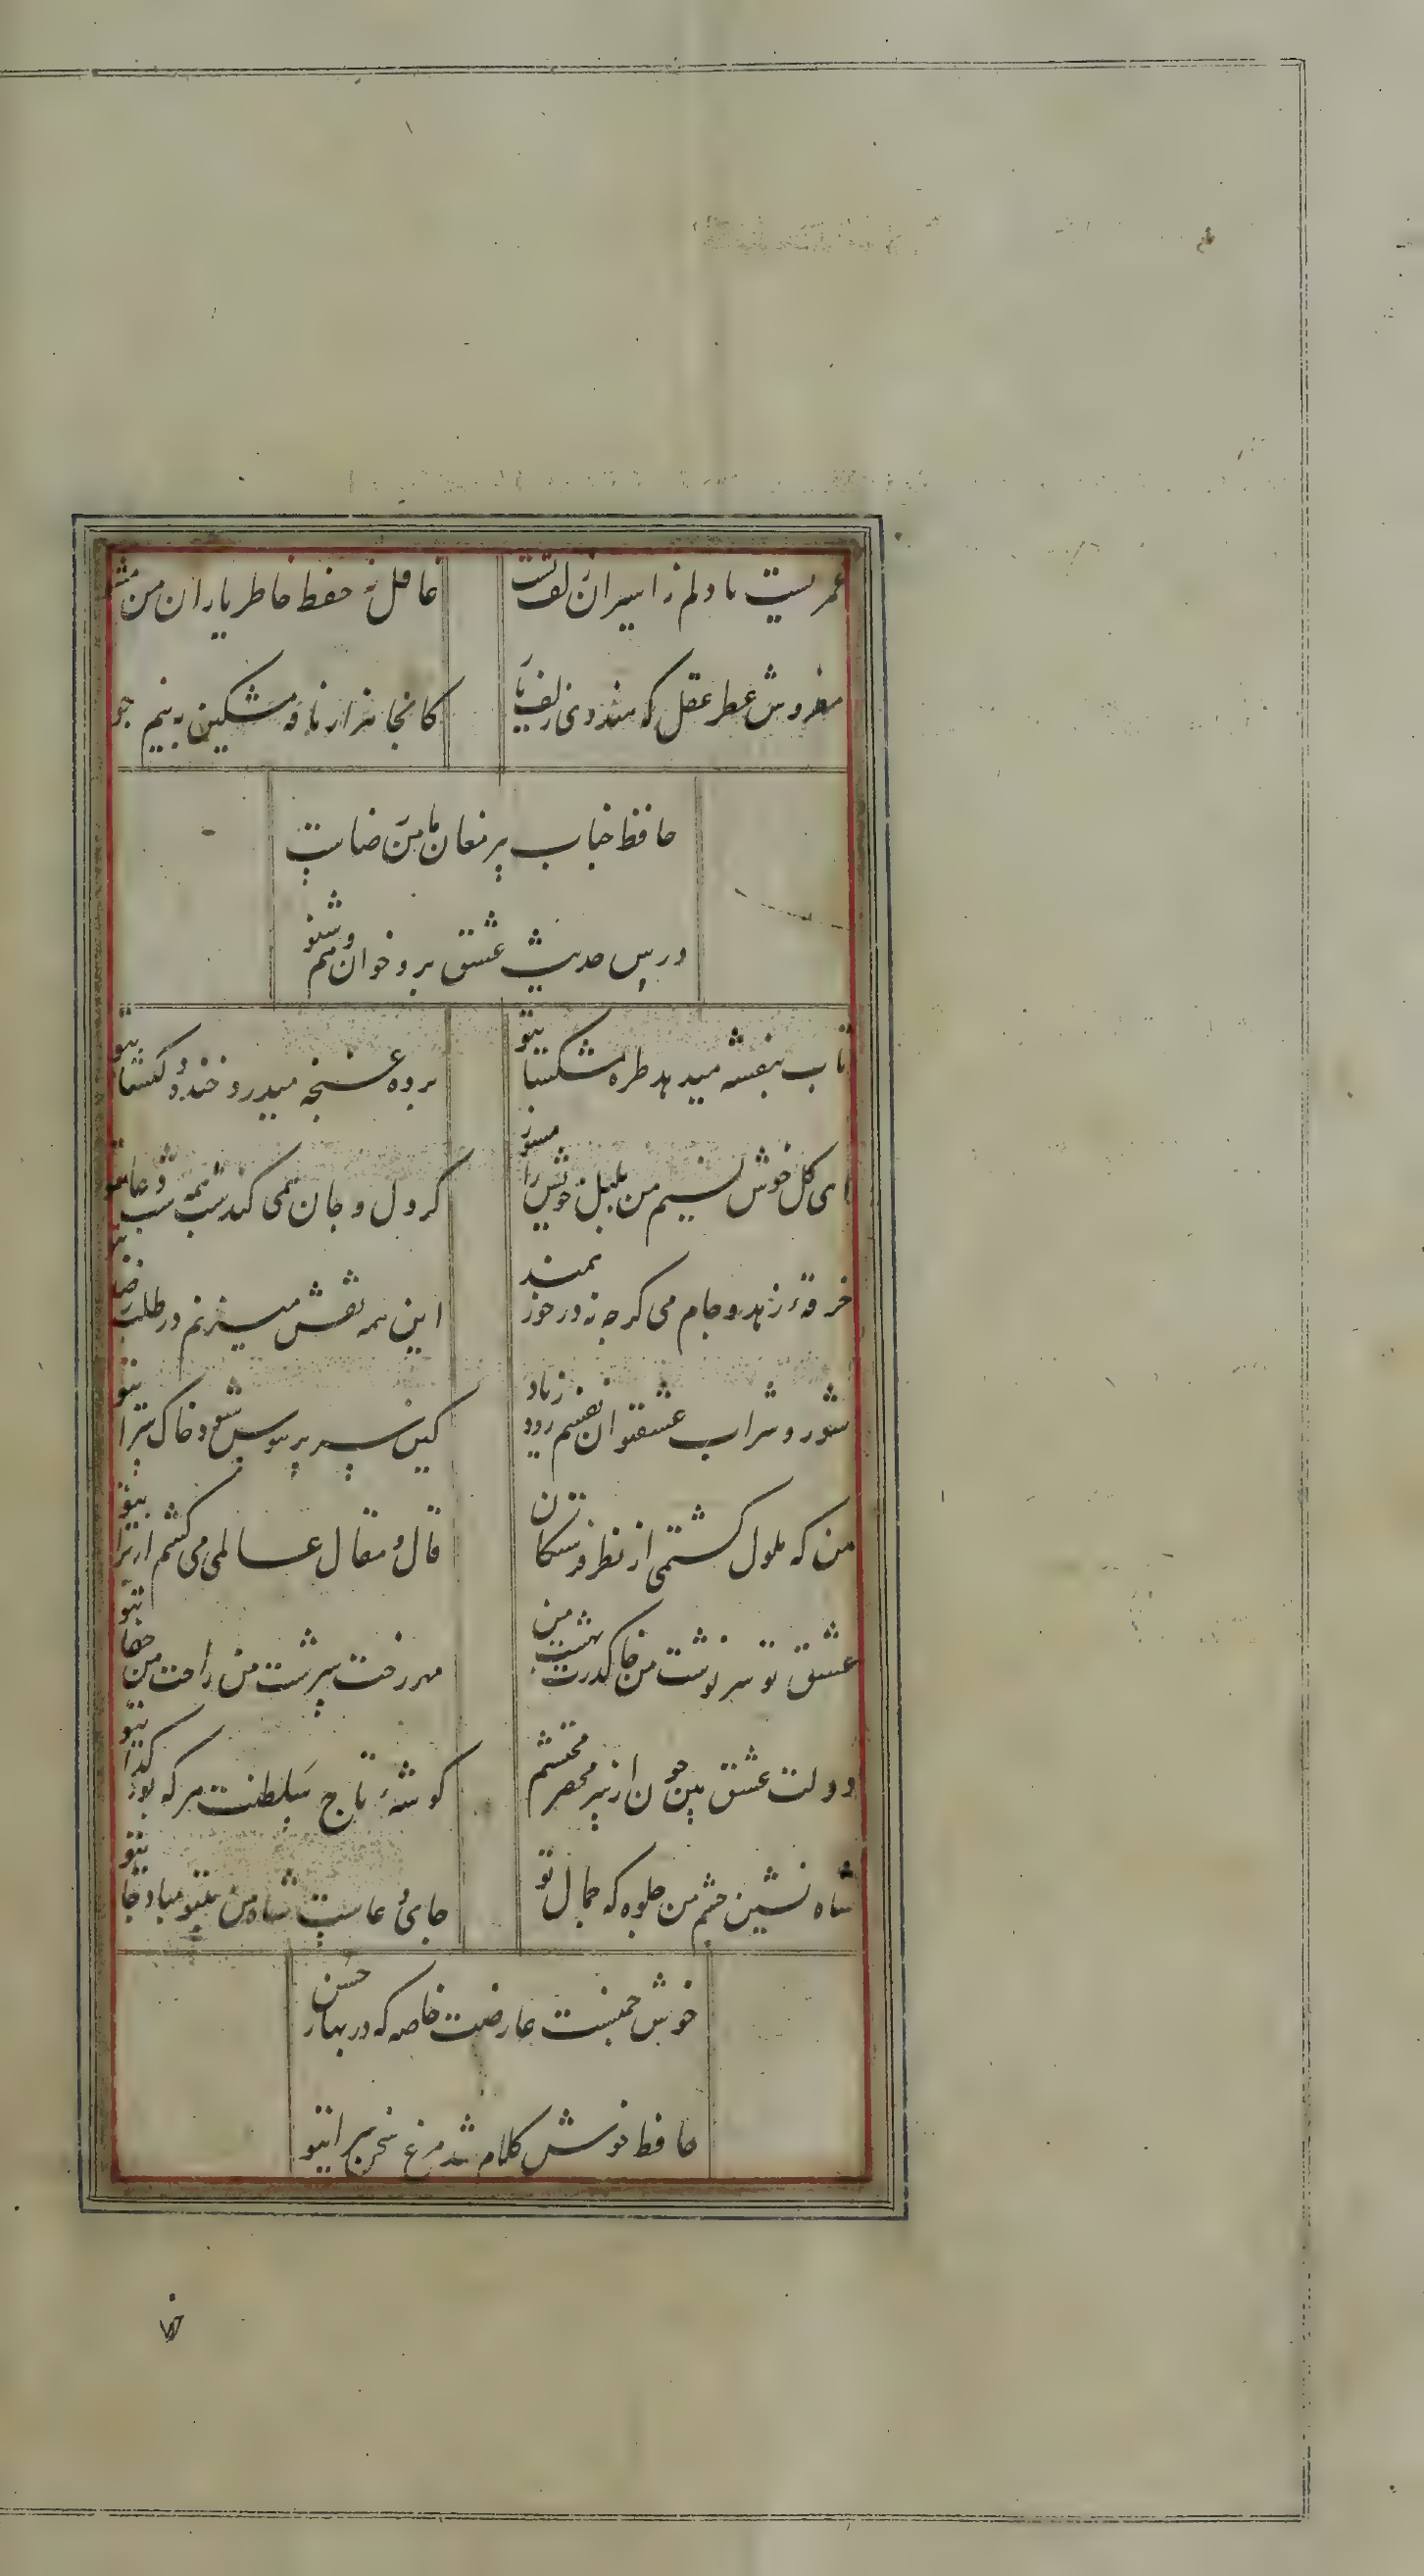 عمریست تا دلم ز اسیران زلف تست
غافل ز حفظ خاطر یاران من مشو
مفروش عطر عقل که هندوی زلف یار
کانجا هزار نافه مشکین به نیم جو
حافظ جناب پیر مغان مامن وفاست
درس حدیث عشق برو خوان وشنو
تاب بنفشه میدهد طره مشکسای تو
پرده غنچه میدرد خنده دلکشای تو
ای کل خوش نسیم من بلبل خویش را مسوز
کز دل و جان همی کند شب همه شب دعای تو
خرقه زهد و جام می کرچه نه در خور همند
این همه نقش میزنم در طلب رضای تو
شور و شراب عشق تو آن نفسم رود زیاد
کین سر پر هوس شود خاک سرای تو
من که ملول کشتمی از نظر فرشتکان
قال و مقال عالمی می کشم از برای تو
عشق تو سرنوشت من خاک درت بهشت من
مهر رخت سرشت من راحت من جفای تو
دولت عشق بین که چون از سر محضر محتشم
کوشه تاج سلطنت هر که بود کدای تو
شاه نشین چشم من جلوه که جمال تو
جای دعاست شاه من بیتو مباد جای تو
خوش چمنیست عارضت خاصه که در بهار حسن
حافظ خوش کلام شد مرغ سخن سرای تو